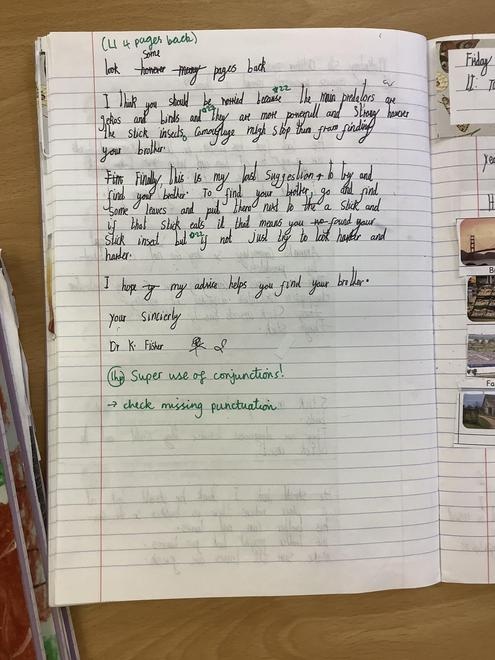 (LI 4 pages back)
Some
look however many pages back
I think you should be worried because the main predators are
gekos and birds and they are more powerfull and strong however
the stick insects camouflage migh stop them from finding
your brother.
Fin Finally, this is my last suggestion to try and
find your brother. To find your brother, go and find
some leaves and put them next to the a stick and
if that stick eats it that means you found your
stick insect but if not Just try to look harder and
harder.
I hope my advice helps you find your brother.
your sincierly
Dr K. Fisher
1hp Super use of conjunctions!
→ check missing punctuation
Friday
LI: To